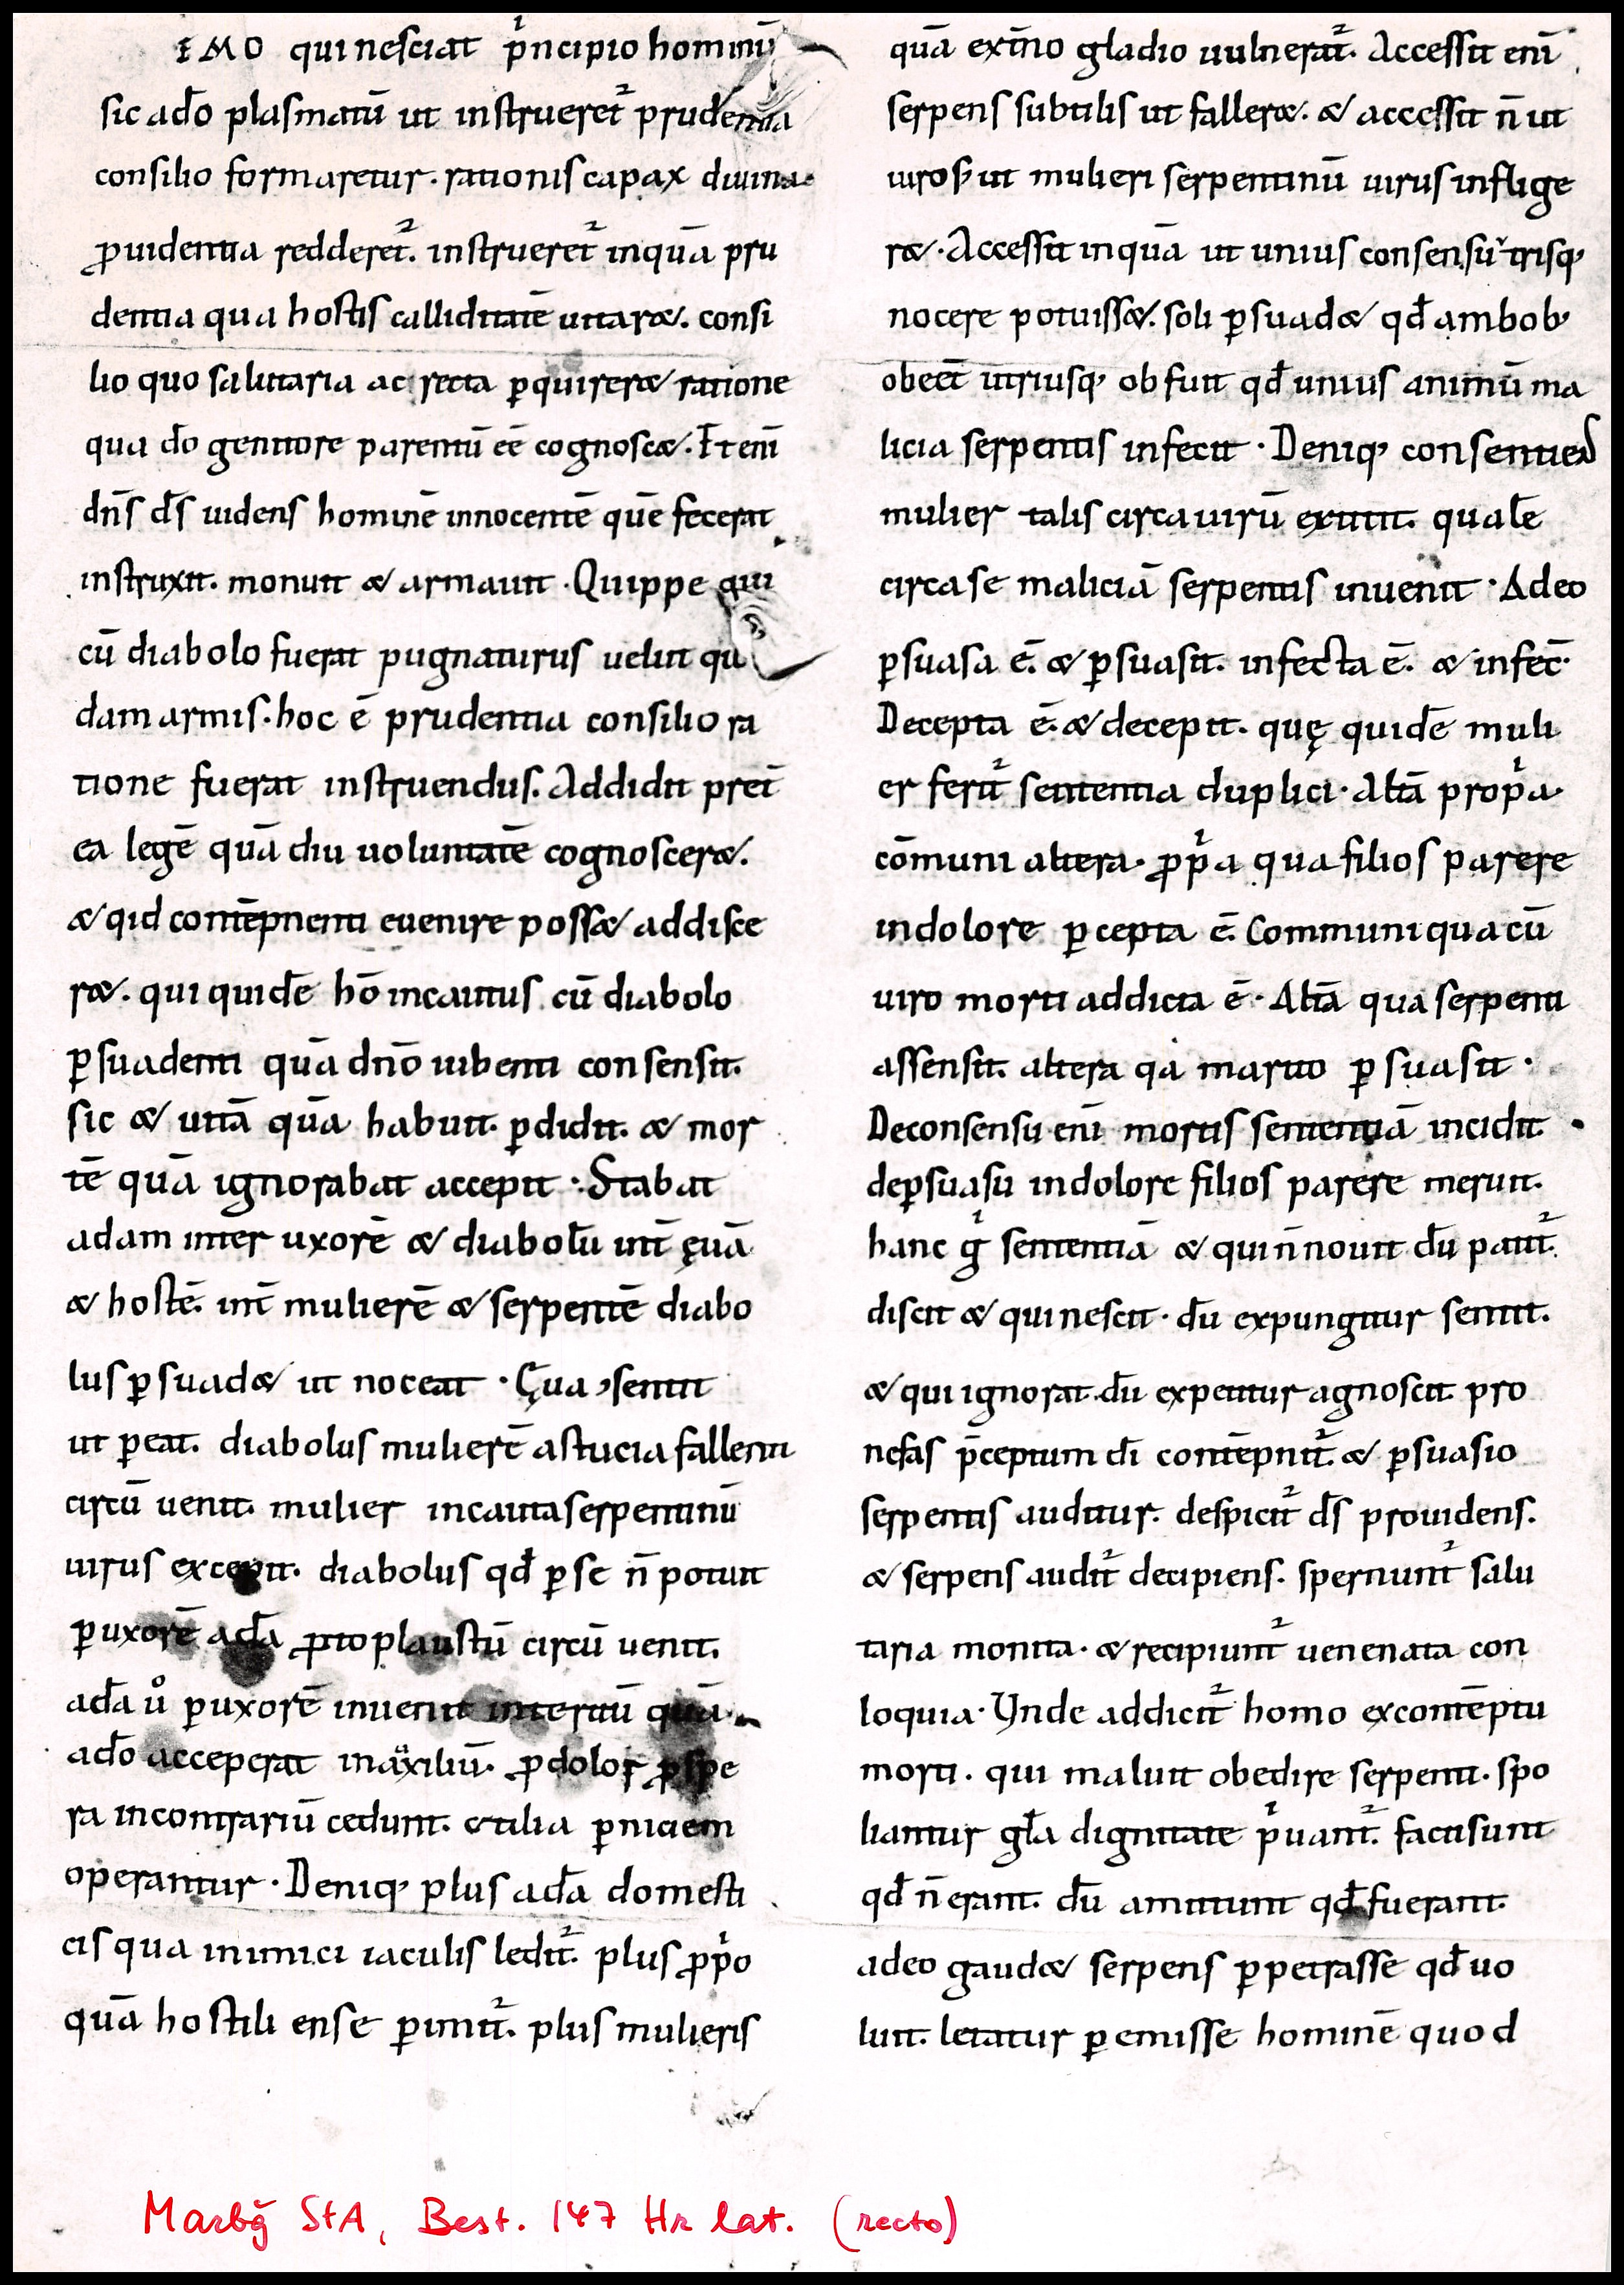 IMO qui nesciat pͥncipio hominū
sic ado̅ plasmatū ut instrueret᷑ prudentia
consilio formaretur. rationis capax diuinae
ꝓuidentia redderet᷑. instrueret᷑ inquā pru
dentia qua hostis calliditatē uitar&. consi
lio quo salutaria ac recta ꝑquirer& ratione
qua do̅ genitore parentū ee̅ cognosc&. Et eni̅
dn̅s ds̅ uidens hominē innocentē quē fecerat
instruxit. monuit & armauit. Quippe qui
cū diabolo fuerat pugnaturus uelut qui
dam armis. hoc ē prudentia consilio ra
tione fuerat instruendus. Addidit pret̅
ea legē quā diu uoluntatē cognoscer&.
& qid contēpnenti euenire poss& addisce
r&. qui quidē ho̅ incautus cū diabolo
ꝑsuadenti quā dn̅o iubenti consensit.
sic & uitā quā habuit. ꝑdidit. & mor
tē quā ignorabat accepit. Stabat
adam inter uxorē & diabolū int̅ ęuā
& hostē. int̅ mulierē & serpentē diabo
lus ꝑsuad& ut noceat. Ęua ,sentit
ut ꝑeat. diabolus mulierē astucia fallenti
circū uenit. mulier incauta serpentinū
uirus excepit. diabolus qd̅ ꝑ se n̅ potuit
ꝑ uxorē adā ꝓtoplaustū circū uenit.
adā uͦ ꝑ uxorē inuenit interitū quā
ado̅ acceperat in auxiliū. ꝓdolor ꝓspe
ra in contrariū cedunt. & utilia ꝑniciem
operantur. Deniq; plus adā domesti
cis qua inimici iaculis ledit᷑. plus ꝓpͥo
quā hostili ense ꝑimit᷑. plus mulieris
quā extͥno gladio uulnerat᷑. Accessit eni̅
serpens subtilis ut faller&. & accessit n̅ ut
uiro s; ut mulieri serpentinū uirus inflige
r&. Accessit inquā ut unius consensu utrisq;
nocere potuiss&. soli ꝑsuad& qd̅ ambob;
obeēt utriusq; obfuit qd̅ unius animū ma
licia serpentis infecit. Deniq; consentiens
mulier talis circa uirū extitit. qualē
circa se maliciā serpentis inuenit. Adeo
ꝑsuasa ē. & ꝑsuasit. infecta ē. & infec̅.
Decepta ē. & decepit. quę quidē muli
er ferit᷑ sententia duplici. Altā propͥa.
cōmuni altera. ꝓpͥa qua filios parere
in dolore ꝑcepta ē. Communi qua cū
uiro morti addicta ē. Altā qua serpenti
assensit. altera qͣ marito ꝑsuasit.
De consensu eni̅ mortis sententiā incidit.
de ꝑsuasu in dolore filios parere meruit.
hanc gͥ sententiā & qui n̅ nouit dū patit᷑.
discit & qui nescit. dū expungitur sentit.
& qui ignorat. dū expetitur agnoscit. pro
nefas p̅ceptum di̅ contēpnit᷑. & ꝑsuasio
serpentis auditur. despicit᷑ ds̅ prouidens.
& serpens audit᷑ decipiens. spernunt᷑ salu
taria monita. & recipiunt᷑ uenenata con
loquia. Unde addicit᷑ homo ex contēptu
morti. qui maluit obedire serpenti. spo
liantur glā dignitate pͥuant᷑. facti sunt
qd̅ n̅ erant. dū amittunt qd̅ fuerant.
adeo gaud& serpens ꝑpetrasse qd̅ uo
luit. letatur ꝑemisse hominē quod
Marbg̃ StA, Best. 147 Hr lat. (recto)